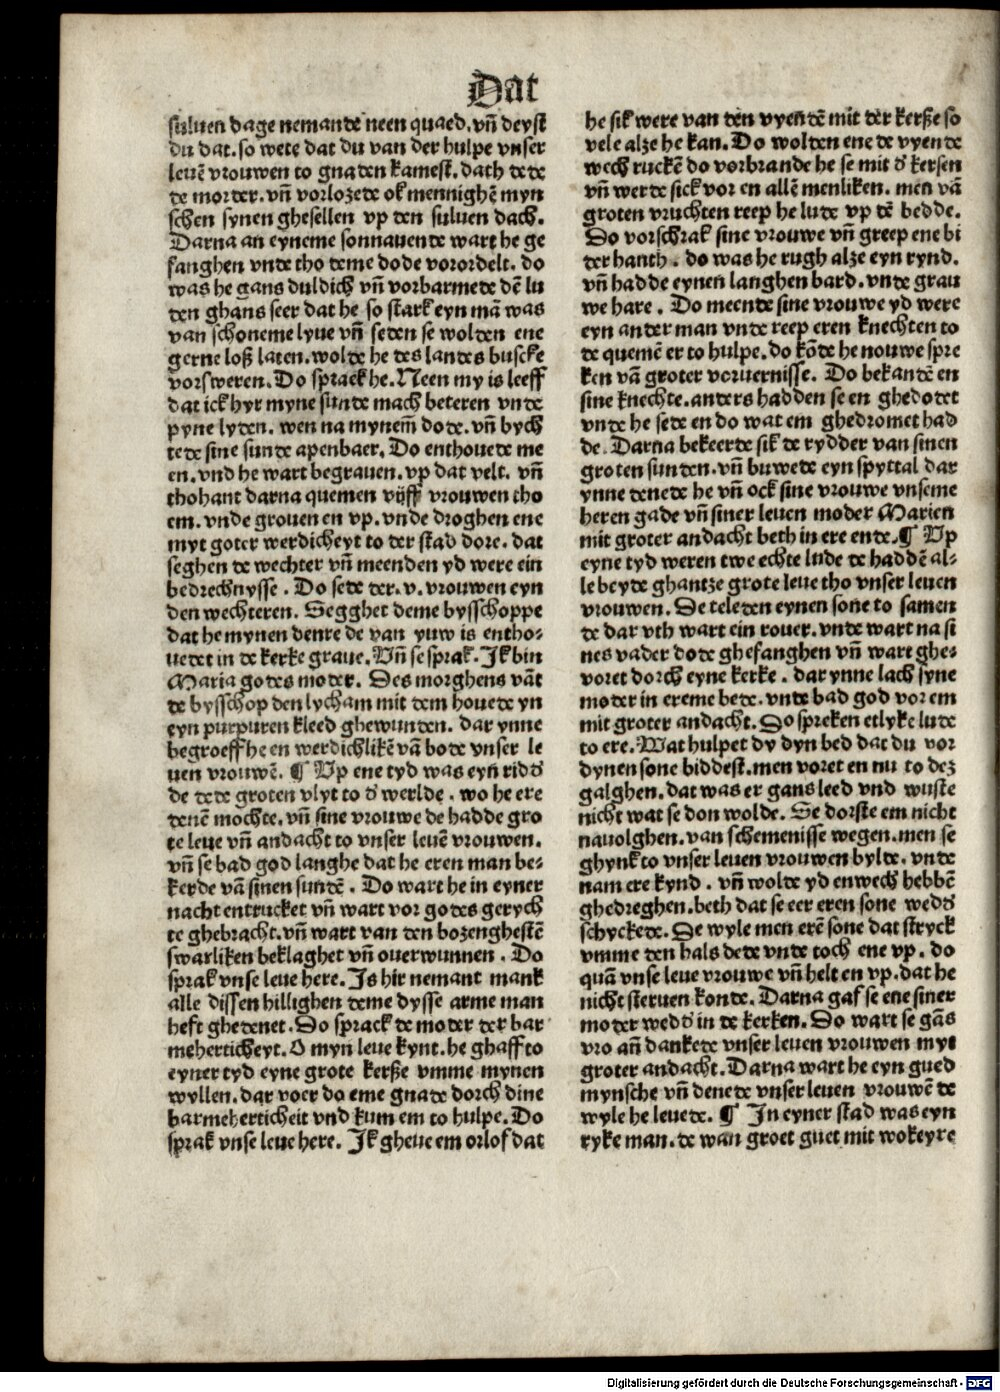 Dat
suluen dage nemande neen quaed. vn̄ deyst
du dat. so wete dat du van der hulpe vnser
leuē vrouwen to gnaden kamest. dath dede
de morder. vn̄ vorlozede ok mennighē myn
schen synen ghesellen vp den suluen dach.
Darna an eyneme sonnauende wart he ge
fanghen vnde tho deme dode vorordelt. do
was he gans duldich vn̄ vorbarmede dē lu
den ghans seer dat he so stark eyn mā was
van schoneme lyue vn̄ seden se wolden ene
gerne loß laten. wolde he des landes buscke
vorsweren. Do sprack he. Neen my is leeff
dat ick hyr myne sunde mach beteren vnde
pyne lyden. wen na mynem̄ dode. vn̄ bych
tede sine sunde apenbaer. Do enthouede me
en. vnd he wart begrauen. vp dat velt. vn̄
thohant darna quemen vijff vrouwen tho
em. vnde grouen en vp. vnde droghen ene
myt goter werdicheyt to der stad dore. dat
seghen de wechter vn̄ meenden yd were ein
bedrechnysse. Do sede der. v. vrouwen eyn
den wechteren. Segghet deme bysschoppe
dat he mynen denre de van yuw is entho-
uedet in de kerke graue. Vn̄ se sprak. Jk bin
Maria godes moder. Des morghens vāt
de bysschop den lycham mit dem houede yn
eyn purpuren kleed ghewunden. dar ynne
begroeff he en werdichlikē vā bode vnser le
uen vrouwē. ¶ Vp ene tyd was eyn ridd
de dede groten vlyt to d werlde. wo he ere
denē mochte. vn̄ sine vrouwe de hadde gro
te leue vn̄ andacht to vnser leuē vrouwen.
vn̄ se bad god langhe dat he eren man be-
kerde vā sinen sundē. Do wart he in eyner
nacht entrucket vn̄ wart vor godes gerych
te ghebracht. vn̄ wart van den bozenghestē
swarliken beklaghet vn̄ ouerwunnen. Do
sprak vnse leue here. Js hir nemant mank
alle dissen hillighen deme dysse arme man
heft ghedenet. Do sprack de moder der bar
meherticheyt. O myn leue kynt. he ghaff to
eyner tyd eyne grote kerße vmme mynen
wyllen. dar voer do eme gnade dorch dine
barmeherticheit vnd kum em to hulpe. Do
sprak vnse leue here. Jk gheue em orlof dat
he sik were van den vyendē mit der kerße so
vele alze he kan. Do wolden ene de vyende
wech ruckē do vorbrande he se mit d kersen
vn̄ werde sick vor en allē menliken. men vā
groten vruchten reep he lude vp dē bedde.
Do vorschrak sine vrouwe vn̄ greep ene bi
der hanth. do was he rugh alze eyn rynd.
vn̄ hadde eynen langhen bard. vnde grau
we hare. Do meende sine vrouwe yd were
eyn ander man vnde reep eren knechten to
de quemē er to hulpe. do kōde he nouwe spre
ken vā groter voruernisse. Do bekandē en
sine knechte. anders hadden se en ghedodet
vnde he sede en do wat em ghedromet had
de. Darna bekeerde sik de rydder van sinen
groten sunden. vn̄ buwede eyn spyttal dar
ynne denede he vn̄ ock sine vrouwe vnseme
heren gade vn̄ siner leuen moder Marien
mit groter andacht beth in ere ende. ¶ Vp
eyne tyd weren twe echte lude de haddē al-
le beyde ghantze grote leue tho vnser leuen
vrouwen. Se teleden eynen sone to samen
de dar vth wart ein rouer. vnde wart na si
nes vader dode ghefanghen vn̄ wart ghe-
voret dorch eyne kerke. dar ynne lach syne
moder in ereme bede. vnde bad god vor em
mit groter andacht. Do spreken etlyke lude
to ere. Wat hulpet dy dyn bed dat du vor
dynen sone biddest. men voret en nu to dez
galghen. dat was er gans leed vnd wuste
nicht wat se don wolde. Se dorste em nicht
nauolghen. van schemenisse wegen. men se
ghynk to vnser leuen vrouwen bylde. vnde
nam ere kynd. vn̄ wolde yd enwech hebbē
ghedreghen. beth dat se eer eren sone wedd
schyckede. De wyle men erē sone dat stryck
vmme den hals dede vnde toch ene vp. do
quā vnse leue vrouwe vn̄ helt en vp. dat he
nicht steruen konde. Darna gaf se ene siner
moder wedd in de kerken. Do wart se gās
vro an̄ dankede vnser leuen vrouwen myt
groter andacht. Darna wart he eyn gued
mynsche vn̄ denede vnser leuen vrouwē de
wyle he leuede. ¶ Jn eyner stad was eyn
ryke man. de wan groet guet mit wokeyre
Digitalisierung gefördert durch die Deutsche Forschungsgemeinschaft - DFG